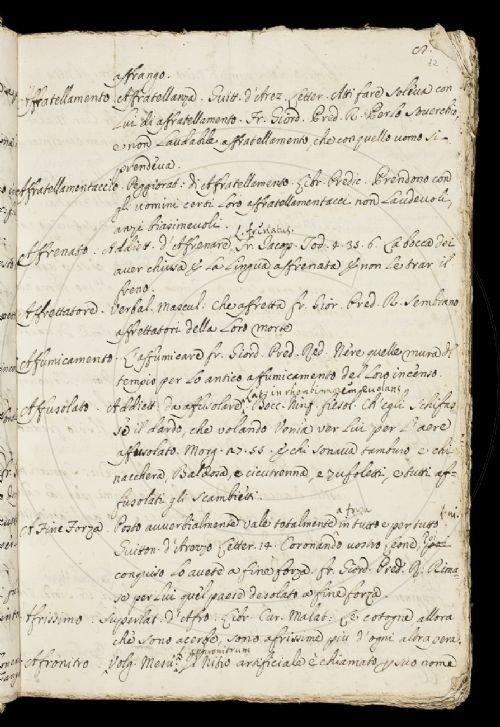 12
affrango.
Affratellamento. Affratellanza. Guitt. d'Arez. Letter. Atti fare soleva con
Lui di affratellamento. Fr. Giord. Pred. R. Perlo soverchio,
e non Laudabile affratellamento, che con quello uomo si
prendeva.
Affratellamentaccio. Peggiorat. di Affratellamento. Libr. Predic. Prendono con
gli uomini certi Loro affratellamentacci non Laudevoli,
anzi biasimevoli.
Affrenato. Addiett. d'Affrenare. Fr. Iacop. Tod. 4. 33. 6. La bocca dei
aver chiusa, La Lingua affrenata non le trar il
freno.
Affrettatore. Verbal. Mascul. Che affretta fr. Gior. Pred. R. Sembrano
affrettatori della Loro morte
Affumicamento. L'affumicare fr. Giord. Pred. Red. Nere quelle mura di
tempio per Lo antico affumicamento del Loro incenso.
Affusolato. Addiett. da affusolare. Bocc. Ninf. fiesol. Ch'egli Schifas
se il dardo, che volando Venia ver Lui per L'aere
affusolato. Morg. 27. 55. chi sonava tamburo, e chi
nacchera, Baldosa, e cicutrenna, e zufoletti, e tutti af-
fusolati gli Scambietti.
A Fine Forza. Posto avverbialmente vale totalmente in tutto e per tutto
Guitton. d'Arezzo Letter. 14. Coronando vostro Leone,
conquiso Lo avete a fine forza. fr. Giord. Pred. R. Rima-
se per Lui quel paese desolato a fine forza.
Afrissimo. Superlat. d'Afro. Libr. Cur. Malat. Le cotogne allora
che sono acerbe, sono afrissime più d'ogni alora pera.
Afronitro. Volg. Mesu. Nitro artificiale è chiamato suo nome